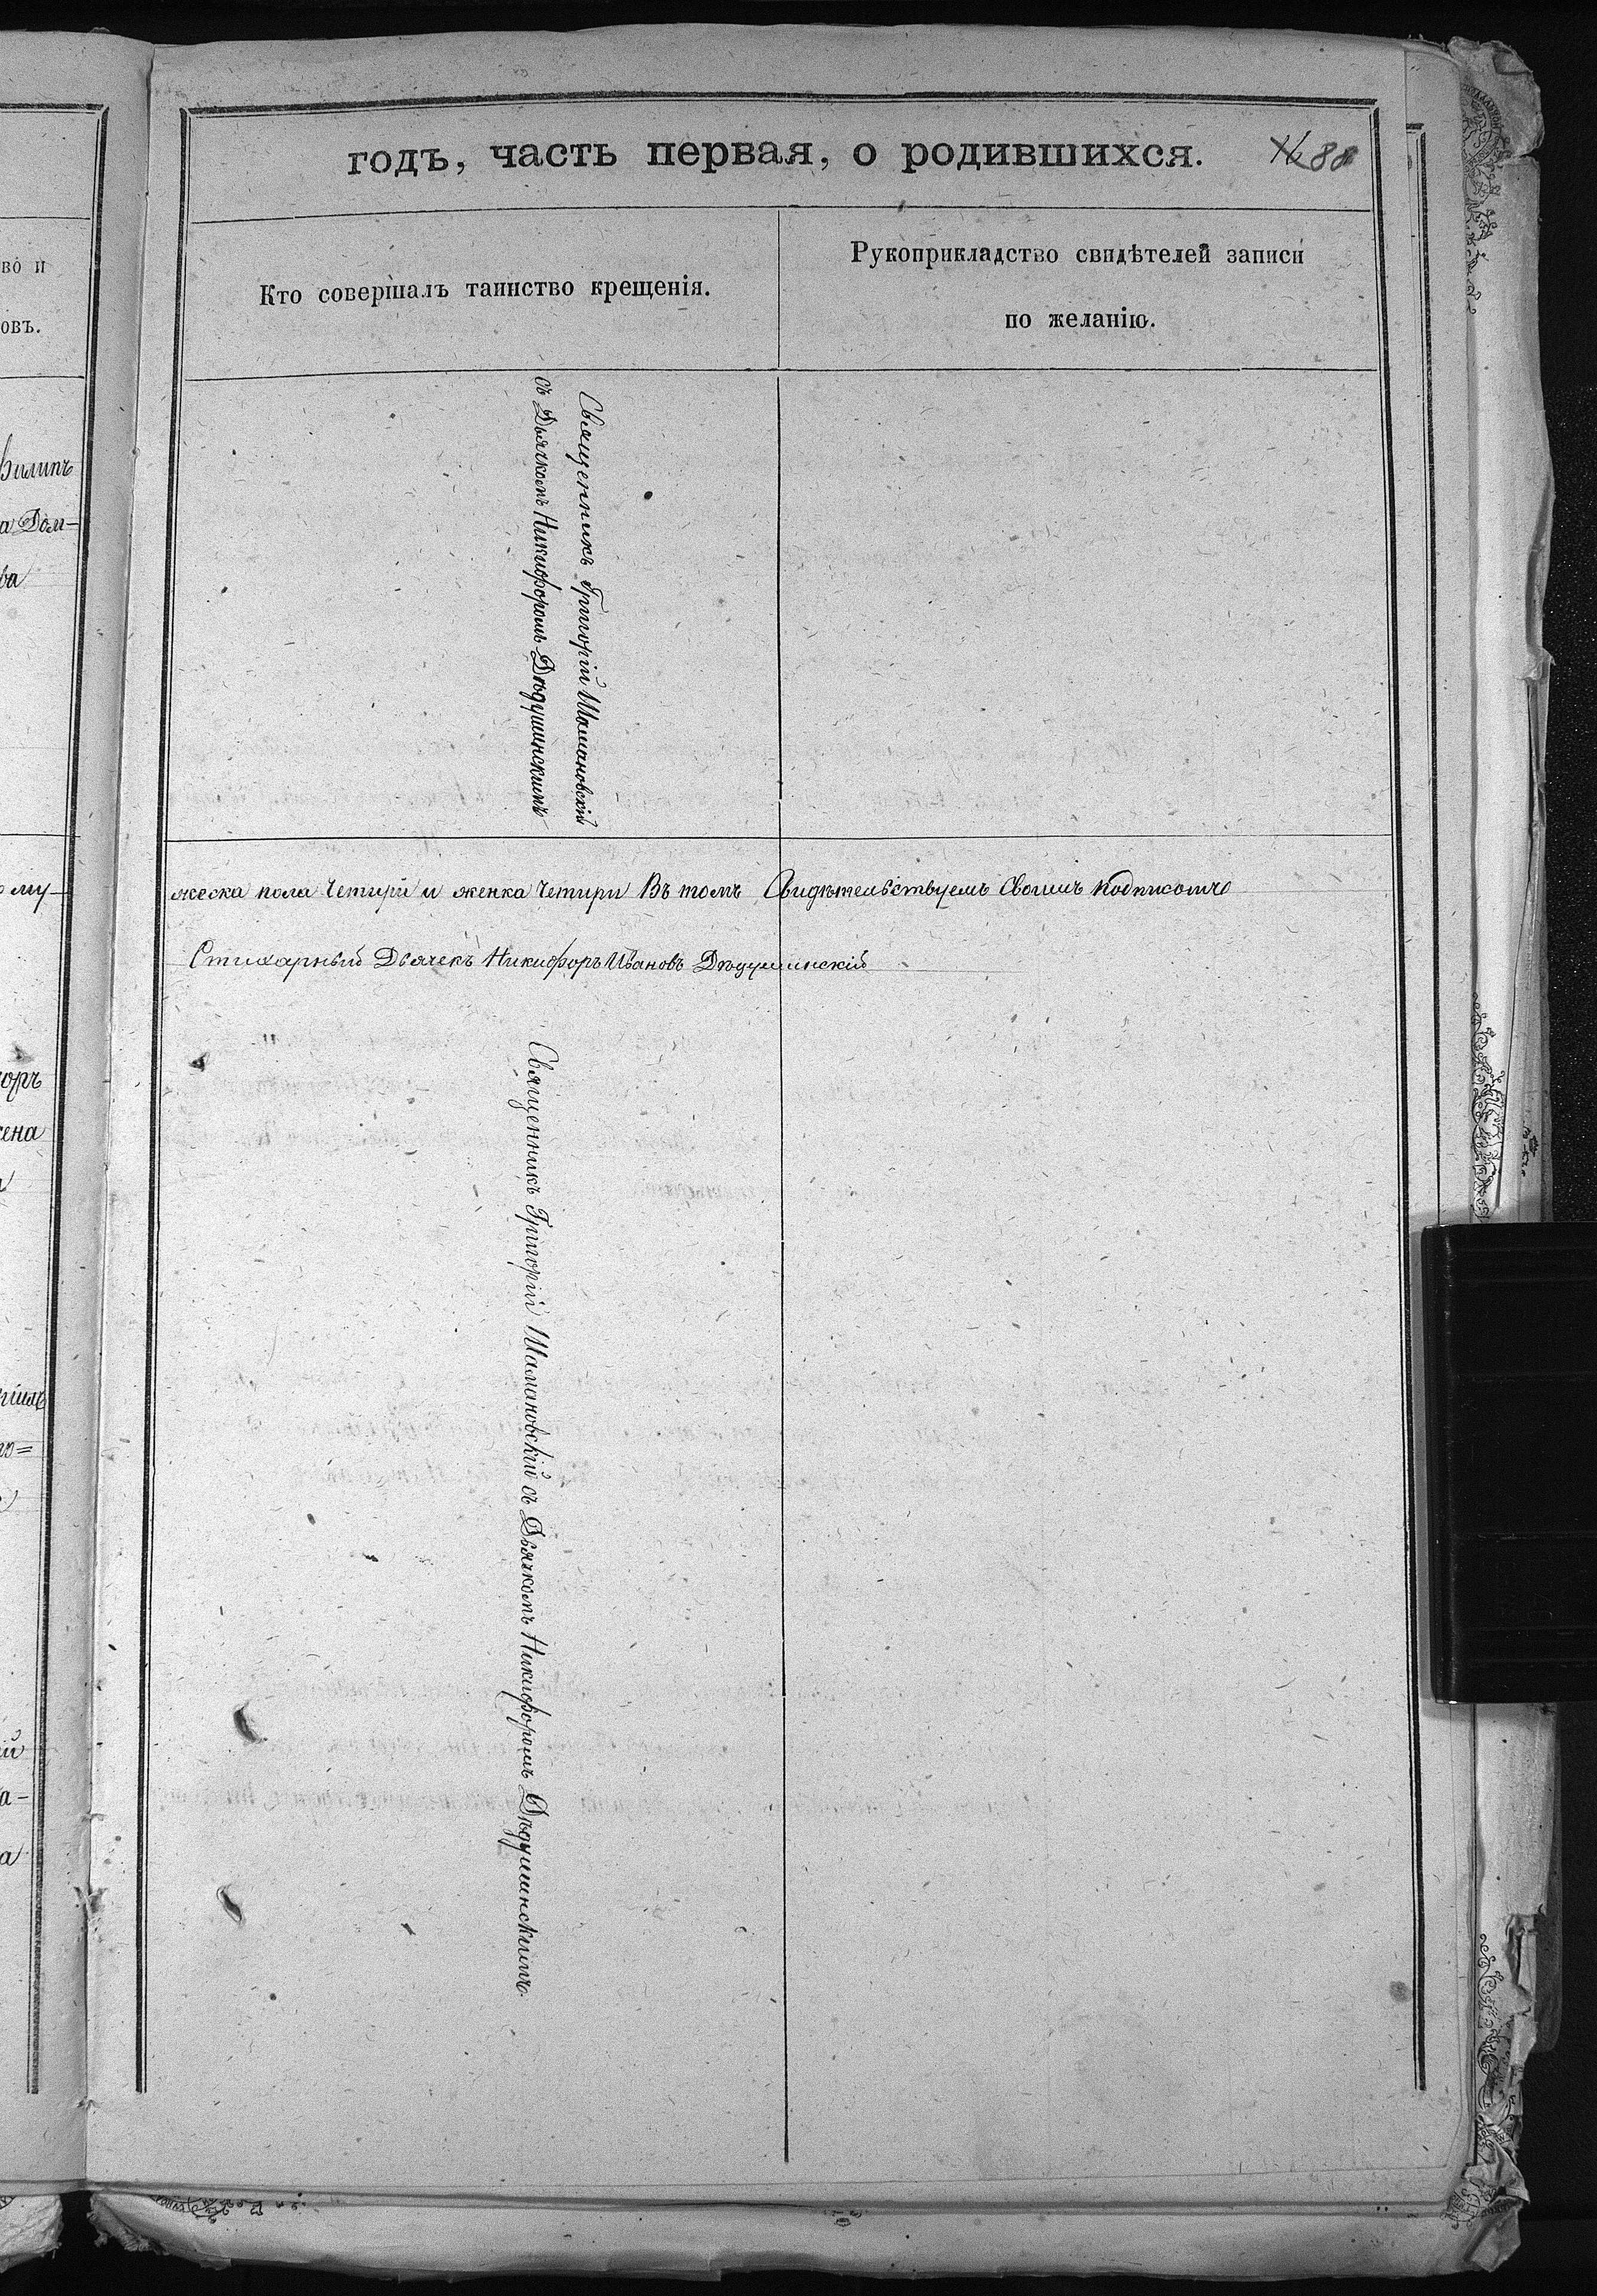 годъ, часть первая, о родившихся.
88
во и
овъ.
Кто совершалъ таинство крещенія.
Рукоприкладство свидѣтелей записи
по желанію.
Филипъ
а Дом-
ва
Священникъ Григорій Шамановскій
съ Дьячкомъ Никифоромъ Дѣдушинскимъ
му-
жеска пола Четыри и женка Четыри Въ томъ Свидѣтельствуемъ Своимъ подписомъ
Стихарный Дьячекъ Никифоръ Ивановъ Дѣдушинскій
оръ
ена
Священникъ Григорій Шамановскій съ Дьячкомъ Никифоромъ Дѣдушинскимъ.
ій
а-
а